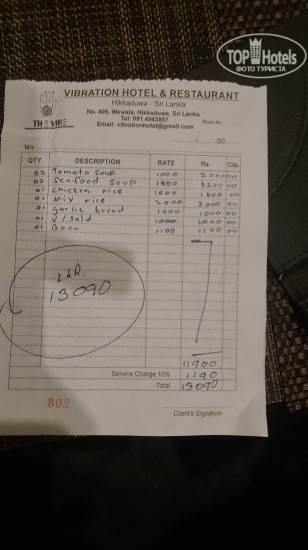 TOPHotels
ФОТО ТУРИСТА
VIBRATION HOTEL & RESTAURANT
Hikkaduwa - Sri Lanka
No. 495, Wewala, Hikkaduwa, Sri Lanka
Tel: 091 4943857
Email: vibrationhotel@gmail.com
THE VIBE
/ /20
M/s
QTY DESCRIPTION RATE Rs. Cts.
02 Tomato Soup 1000 2000 00
02 Seafood Soup 1600 3200 00
01 chicken rice 1600 1600 00
01 Mix rice 2000 2000 00
01 garlic bread 1000 1000 00
01 V/Salad 1000 1000 00
01 Beer 1100 1100 00
LKR.
13090
11900
Service Charge 10% 1190
Total 13090
802
Client's Signature